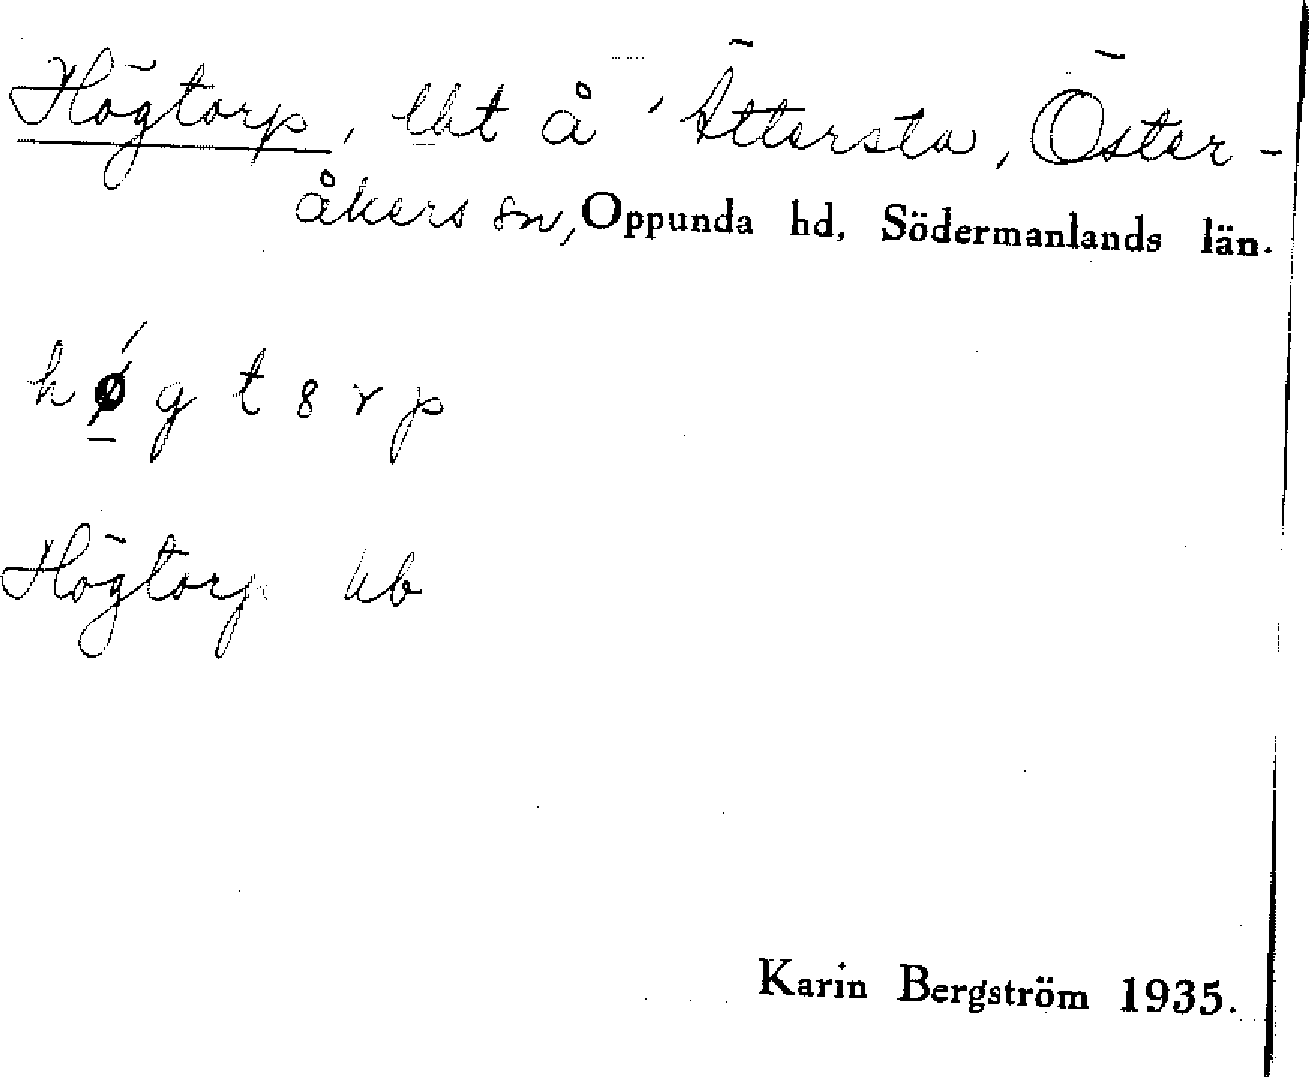 Högtorp, lht å Ättersta, Öster-
åkers sn, Oppunda hd, Södermanlands län.
hǿgtørp
Högtorp ub
Karin Bergström 1935.